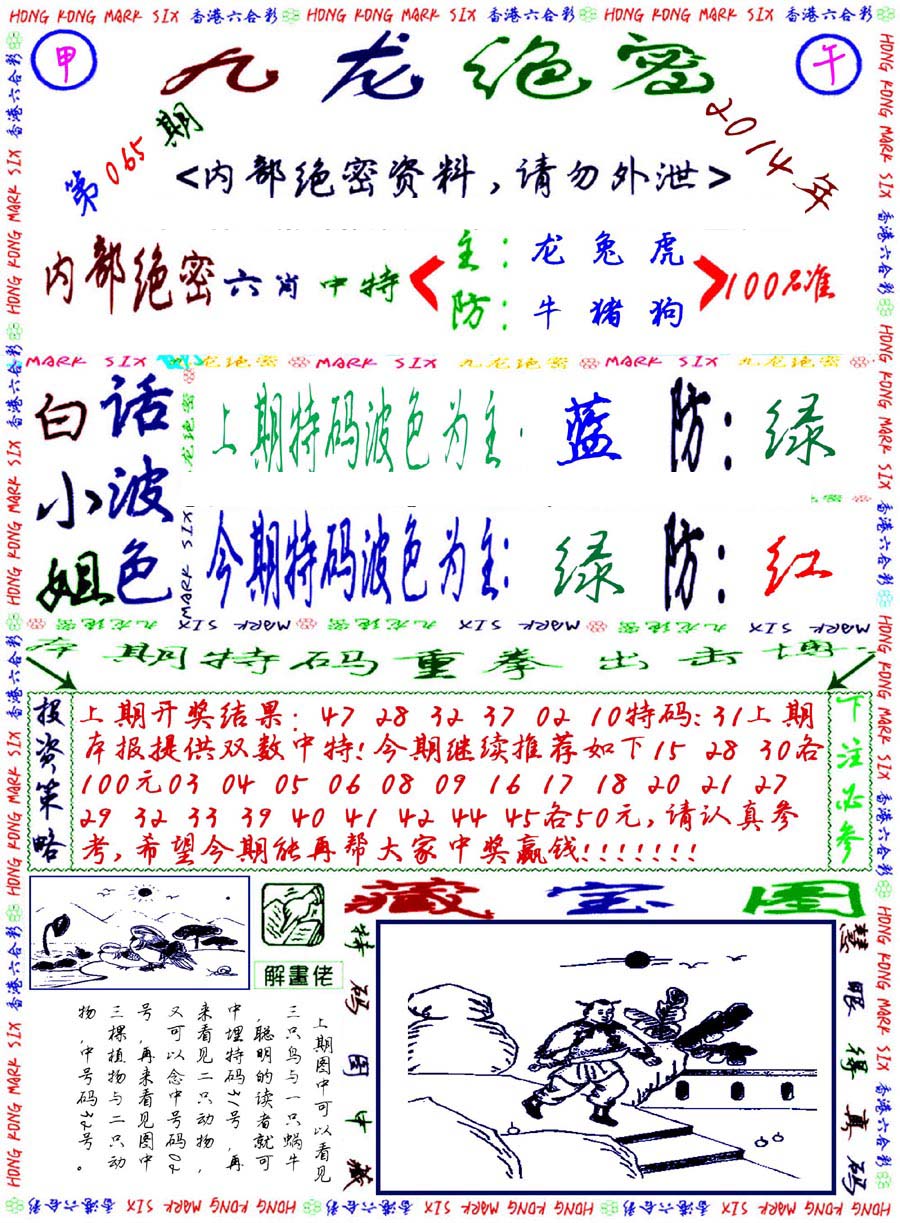 HONG KONG MARK SIX 香港六合彩 HONG KONG MARK SIX 香港六合彩 HONG KONG MARK SIX 香港六合彩
甲
九龙绝密
午
第065期
2014年
<内部绝密资料,请勿外泄>
内部绝密六肖中特
主:龙兔虎
防:牛猪狗
100%准
MARK SIX 九龙绝密 MARK SIX 九龙绝密 MARK SIX 九龙绝密
白话
小波
姐色
上期特码波色为主:蓝 防:绿
今期特码波色为主:绿 防:红
九龙绝密 MARK SIX 九龙绝密 MARK SIX 九龙绝密 MARK SIX
本期特码重拳出击博
投资策略
上期开奖结果:47 28 32 37 02 10特码:31上期
本报提供双数中特!今期继续推荐如下15 28 30各
100元03 04 05 06 08 09 16 17 18 20 21 27
29 32 33 39 40 41 42 44 45各50元,请认真参
考,希望今期能再帮大家中奖赢钱!!!!!!!
下注必参
藏宝图
解畫佬
上期图中可以看见
三只鸟与一只蜗牛
,聪明的读者就可
中埋特码31号,再
来看见二只动物,
又可以念中号码02
号,再来看见图中
三棵植物与二只动
物,中号码32号。
特码图中藏
慧眼得真码
HONG KONG MARK SIX 香港六合彩 HONG KONG MARK SIX 香港六合彩 HONG KONG MARK SIX 香港六合彩